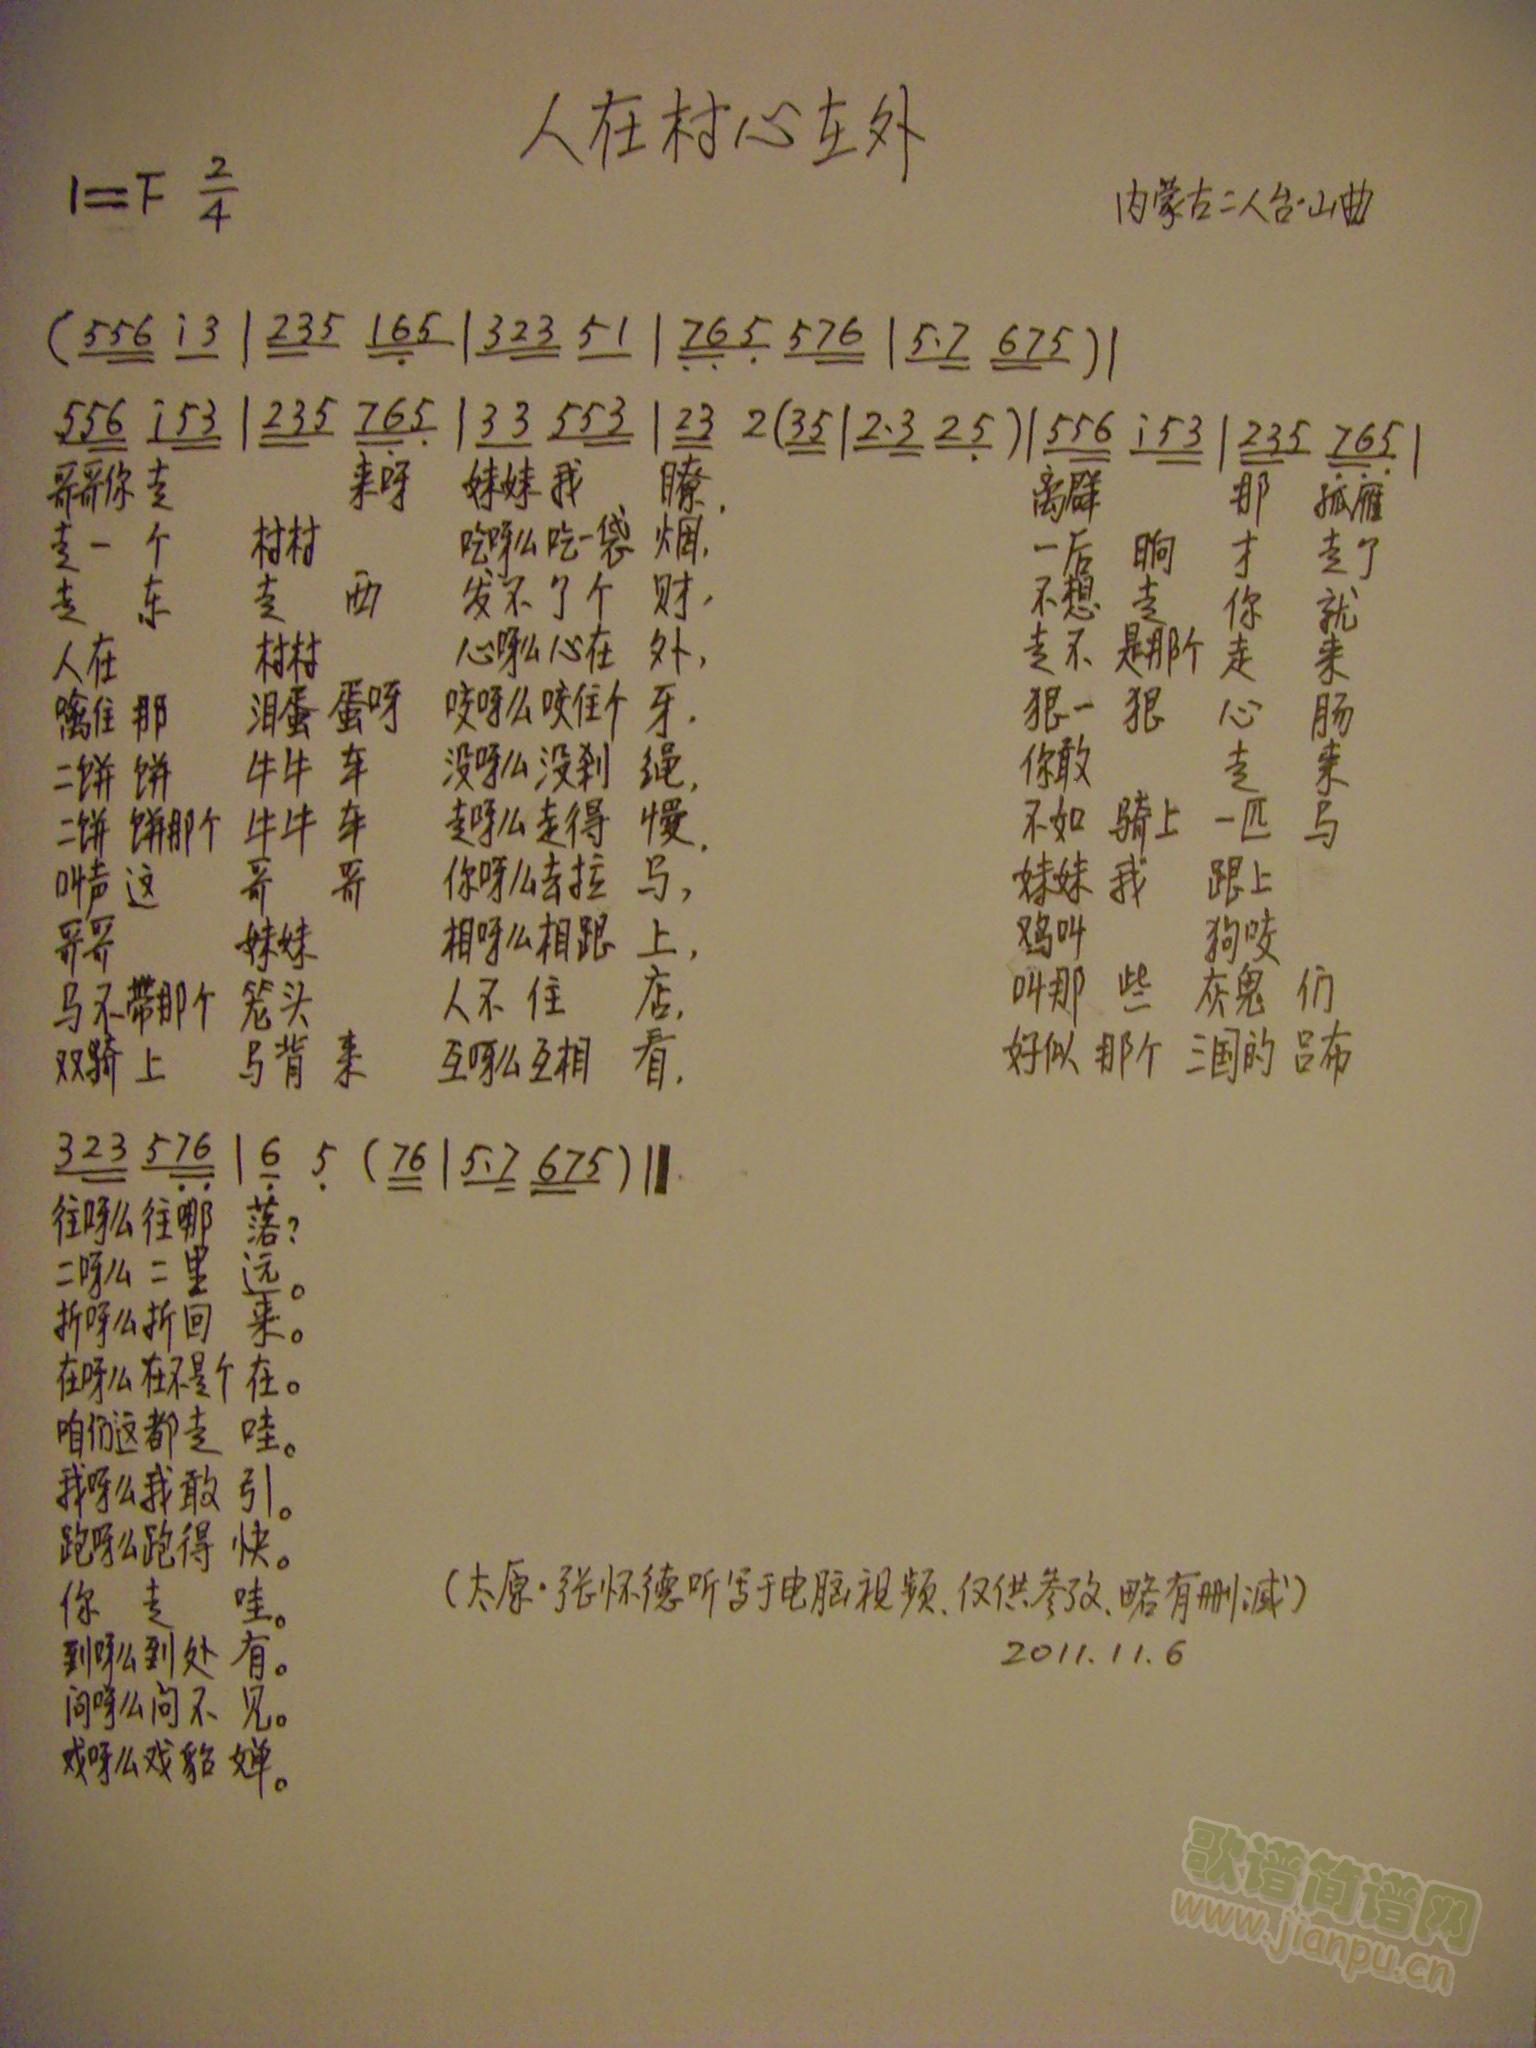 人在村心在外
1=F 2/4
内蒙古二人台·山曲
(556 i3 | 235 165 | 323 51 | 765 576 | 5·7 675 ) |
556 i53 | 235 765 | 33 553 | 23 2(35 | 2·3 25 ) | 556 i53 | 235 765 |
哥哥你走 来呀 妹妹我 瞭, 离群 那 孤雁
走一个 村村 吃呀么吃一袋 烟, 一后 晌 才 走了
走 东 走 西 发不了个 财, 不想 走 你 就
人在 村村 心呀么心在 外, 走不 是那个 走 来
噙住 那 泪蛋 蛋呀 咬呀么咬住个 牙, 狠一 狠 心 肠
二饼 饼 牛牛 车 没呀么没刹 绳, 你敢 走 来
二饼 饼那个 牛牛 车 走呀么走得 慢, 不如 骑上 一匹 马
叫声 这 哥 哥 你呀么去拉 马, 妹妹 我 跟上
哥哥 妹妹 相呀么相跟 上, 鸡叫 狗咬
马不带那个 笼头 人不 住 店, 叫那 些 灰鬼 们
双骑 上 马背 来 互呀么互相 看, 好似 那个 三国的 吕布
323 576 | 6 5 (76 | 5·7 675 ) ‖
往呀么往哪 落?
二呀么二里 远。
折呀么折回 来。
在呀么在不是个 在。
咱们这都走 哇。
我呀么我敢 引。
跑呀么跑得 快。
你 走 哇。
到呀么到处 有。
问呀么问不 见。
戏呀么戏貂 婵。
(太原·张怀德听写于电脑视频、仅供参考、略有删减)
2011.11.6
歌谱简谱网
www.jianpu.cn